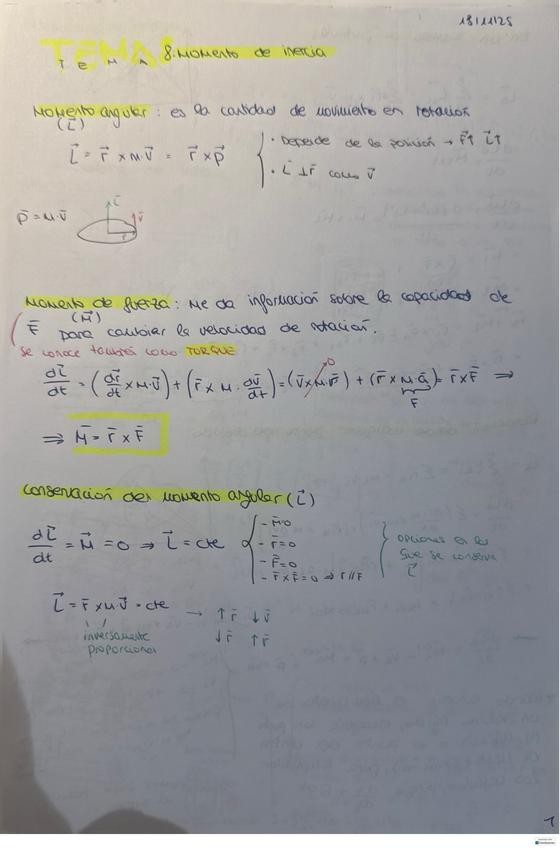 18/11/25
TEMA 8: Momento de inercia
T E M A
Momento angular: es la cantidad de movimiento en rotación
(L⃗)
L⃗ = r⃗ x m·v⃗ = r⃗ x p⃗
· Depende de la posición → r⃗↑ L⃗↑
· L⃗ ⊥ r⃗ como v⃗
p⃗ = m·v⃗
L⃗
v⃗
r
Momento de fuerza: Me da información sobre la capacidad de
(M⃗)
F⃗ para cambiar la velocidad de rotación.
se conoce también como TORQUE
dL⃗/dt = (dr⃗/dt x m·v⃗) + (r⃗ x m·dv⃗/dt) = (v⃗ x m·v⃗) + (r⃗ x m·a⃗) = r⃗ x F⃗ ⇒
0
F⃗
⇒ M⃗ = r⃗ x F⃗
Conservación del momento angular (L⃗)
dL⃗/dt = M⃗ = 0 ⇒ L⃗ = cte
- M⃗=0
- r⃗=0
- F⃗=0
- r⃗ x F⃗ = 0 ⇒ r//F
opciones en las
que se conserva
L⃗
L⃗ = r⃗ x m·v⃗ = cte → ↑r⃗ ↓v⃗
inversamente ↓r⃗ ↑r⃗
proporcional
1